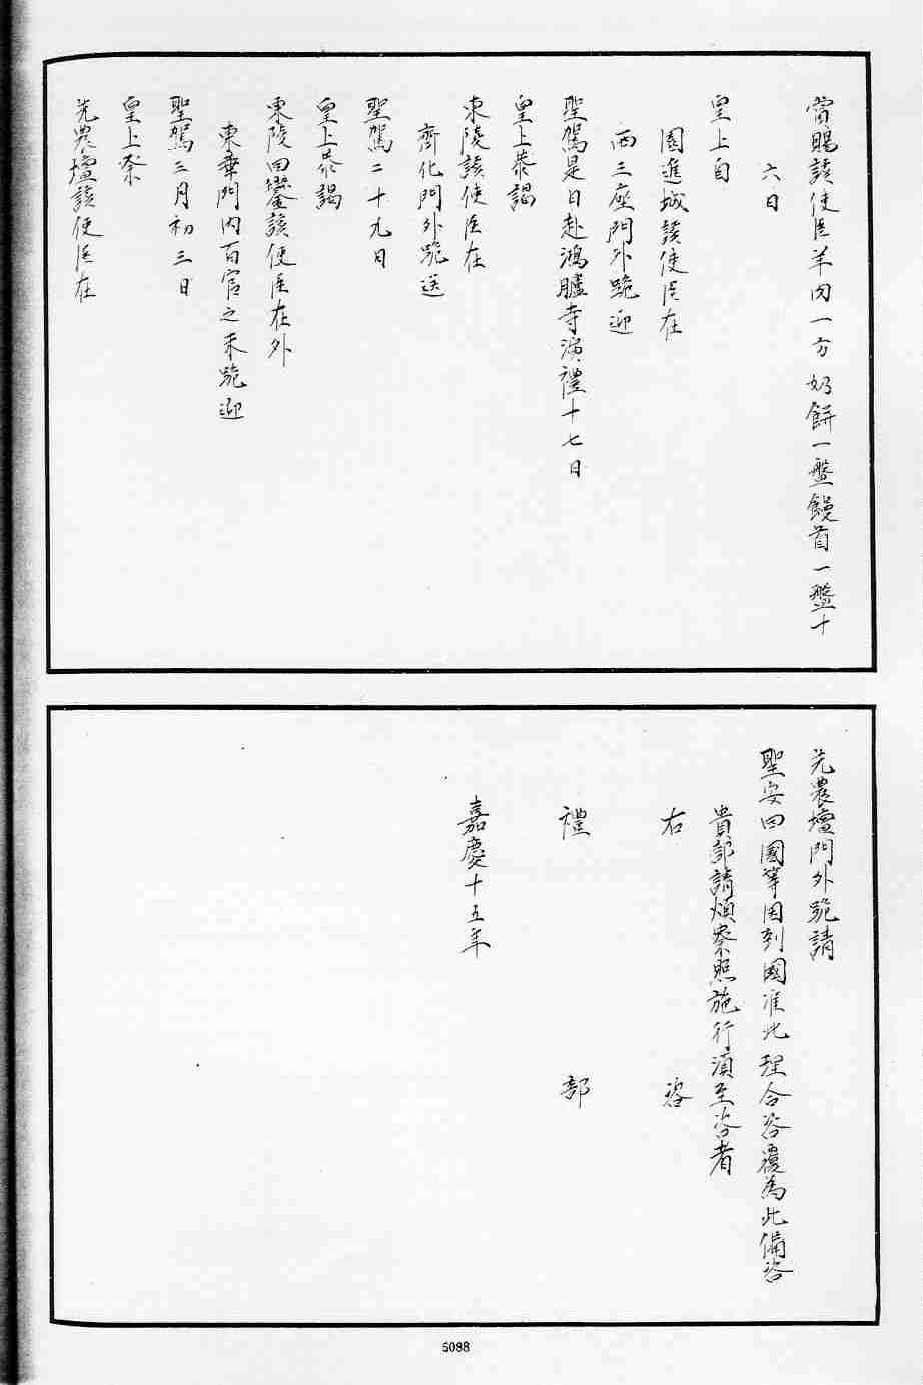 賞賜該使臣羊肉一方奶餅一盤饅首一盤十
六日
皇上自
園進城該使臣在
西三座門外跪迎
聖駕是日赴鴻臚寺演禮十七日
皇上恭謁
東陵該使臣在
齊化門外跪送
聖駕二十九日
皇上恭謁
東陵回鑾該使臣在外
東華門內百官之末跪迎
聖駕三月初三日
皇上祭
先農壇該使臣在
先農壇門外跪請
聖安回國等因到國准此理合咨覆為此備咨
貴部請煩察照施行須至咨者
右 咨
禮 部
嘉慶十五年
5088